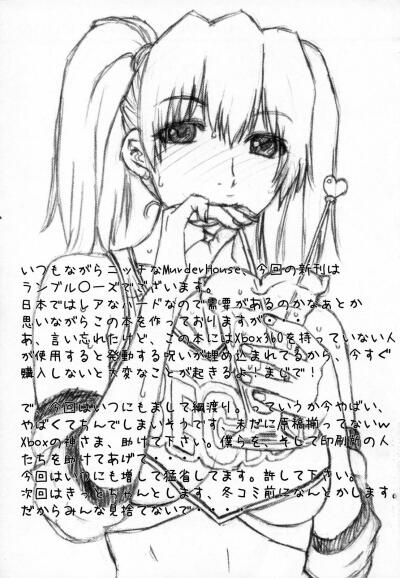 いつもながらニッチなMurderHouse、今回の新刊は
ランブル〇ーズでございます。
日本ではレアなハードなので需要があるのかなあとか
思いながらこの本を作っておりますが
あ、言い忘れたけど、この本にはXbox360を持っていない人
が使用すると発動する呪いが埋め込まれてるから、今すぐ
購入しないと大変なことが起きるよ!まじで!
で、今回はいつにもまして綱渡り。っていうか今やばい、
やばくてちんでしまいそうです、未だに原稿揃ってないw
Xboxの神さま、助けて下さい。僕らを、そして印刷所の人
たちを助けてあげて・・・・
今回はいつにも増して猛省してます。許して下さい。
次回はきっとちゃんとします、冬コミ前になんとかします。
だからみんな見捨てないで・・・・